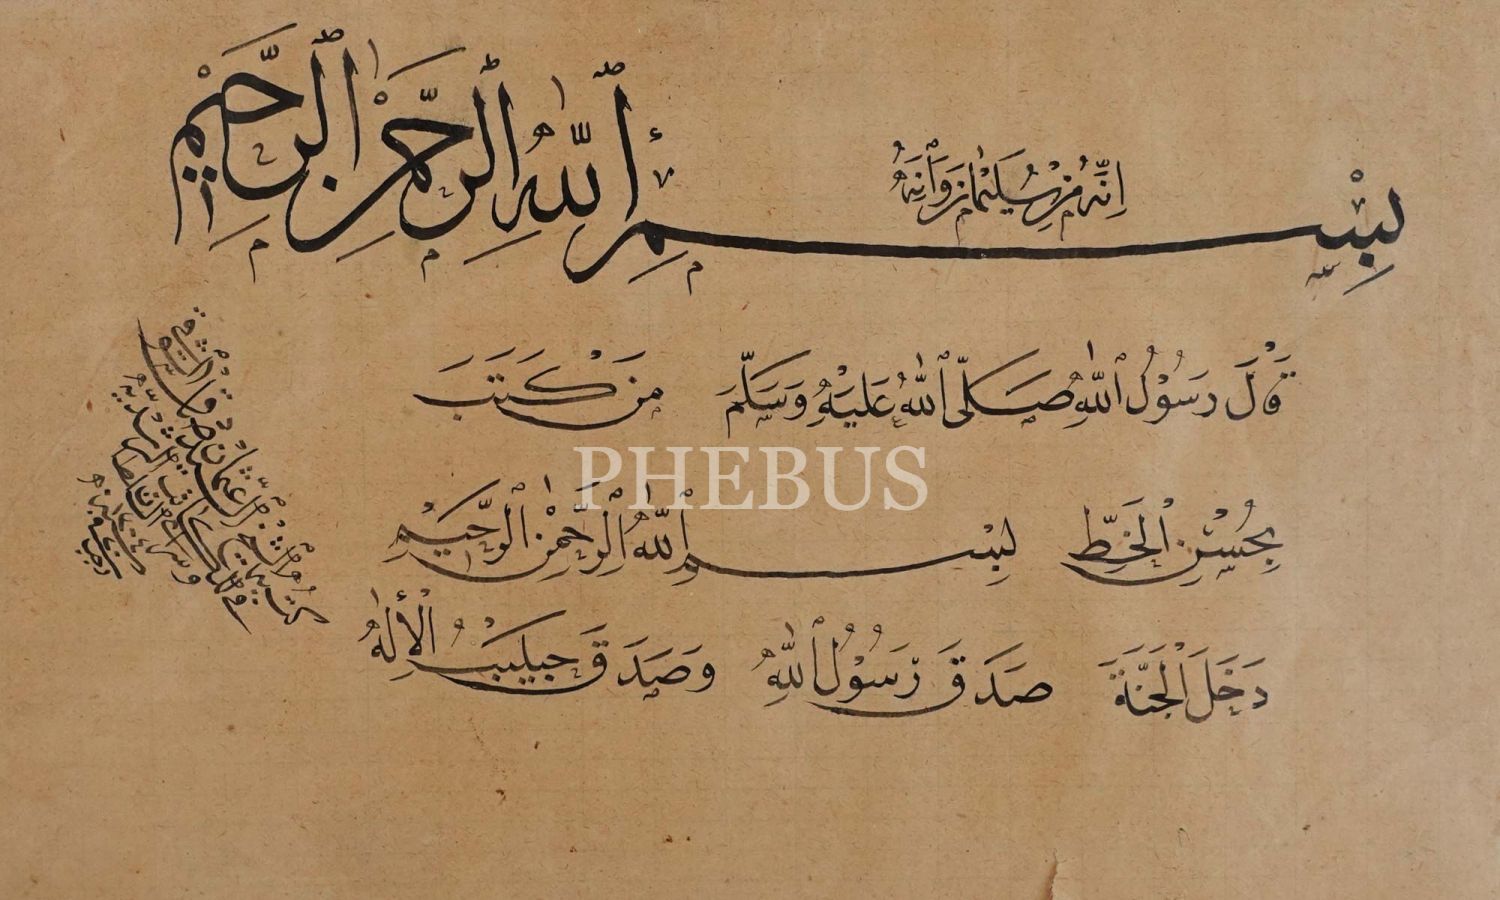 إنه من سليمان وإنه
بسم الله الرحمن الرحيم
قال رسول الله صلى الله عليه وسلم من كتب
بحسن الخط بسم الله الرحمن الرحيم
دخل الجنة صدق رسول الله وصدق حبيب الإله
PHEBUS